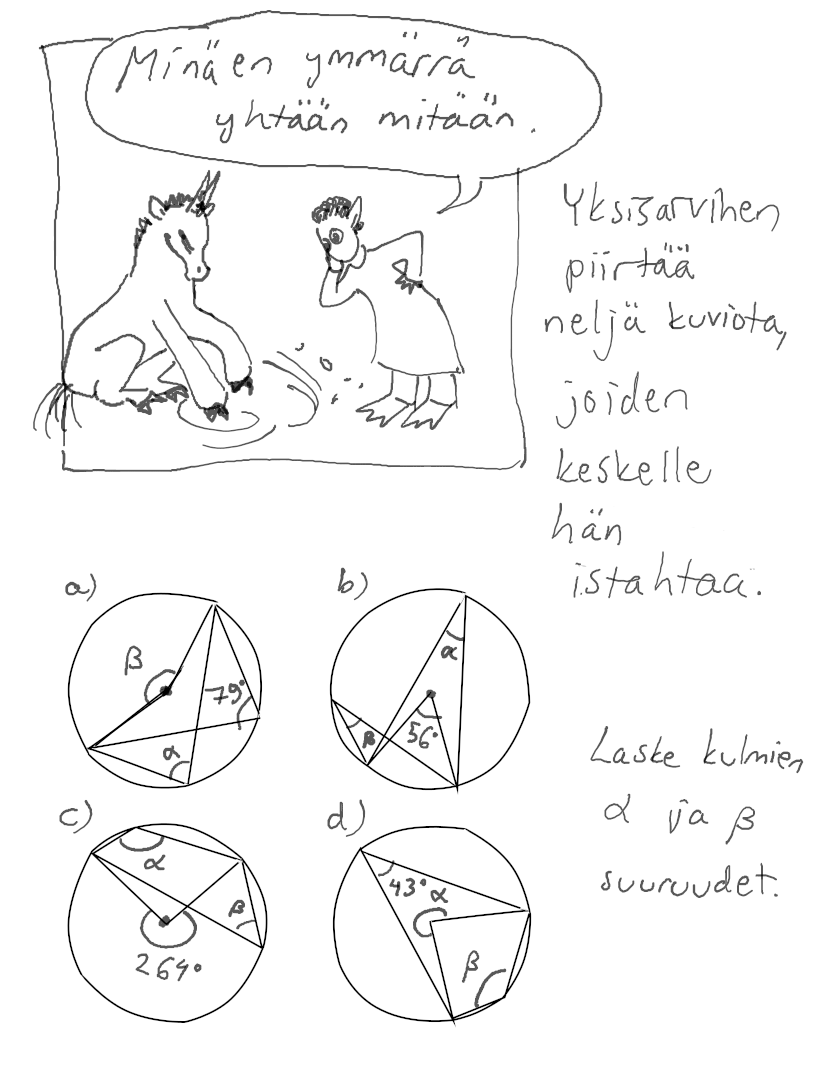 Minä en ymmärrä
yhtään mitään.
Yksisarvinen
piirtää
neljä kuviota,
joiden
keskelle
hän
istahtaa.
a)
β
79°
α
b)
α
β
56°
c)
α
β
264°
d)
43°
α
β
Laske kulmien
α ja β
suuruudet.